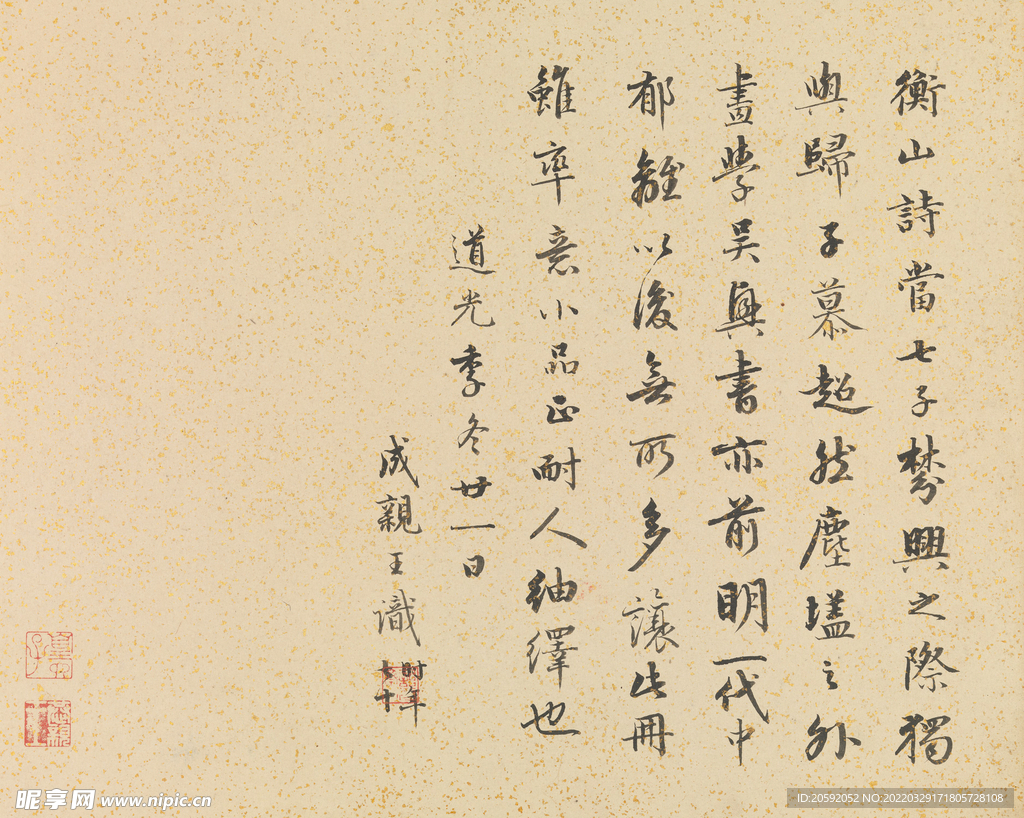 衡山詩當七子棼興之際獨
與歸子慕超然塵壒之外
畫學吳興書亦前明一代中
郁離以後無所多讓此冊
雖率意小品正耐人紬繹也
道光季冬廿一日
成親王識
时年
七十
昵享网 www.nipic.cn
ID:20592052 NO:20220329171805728108